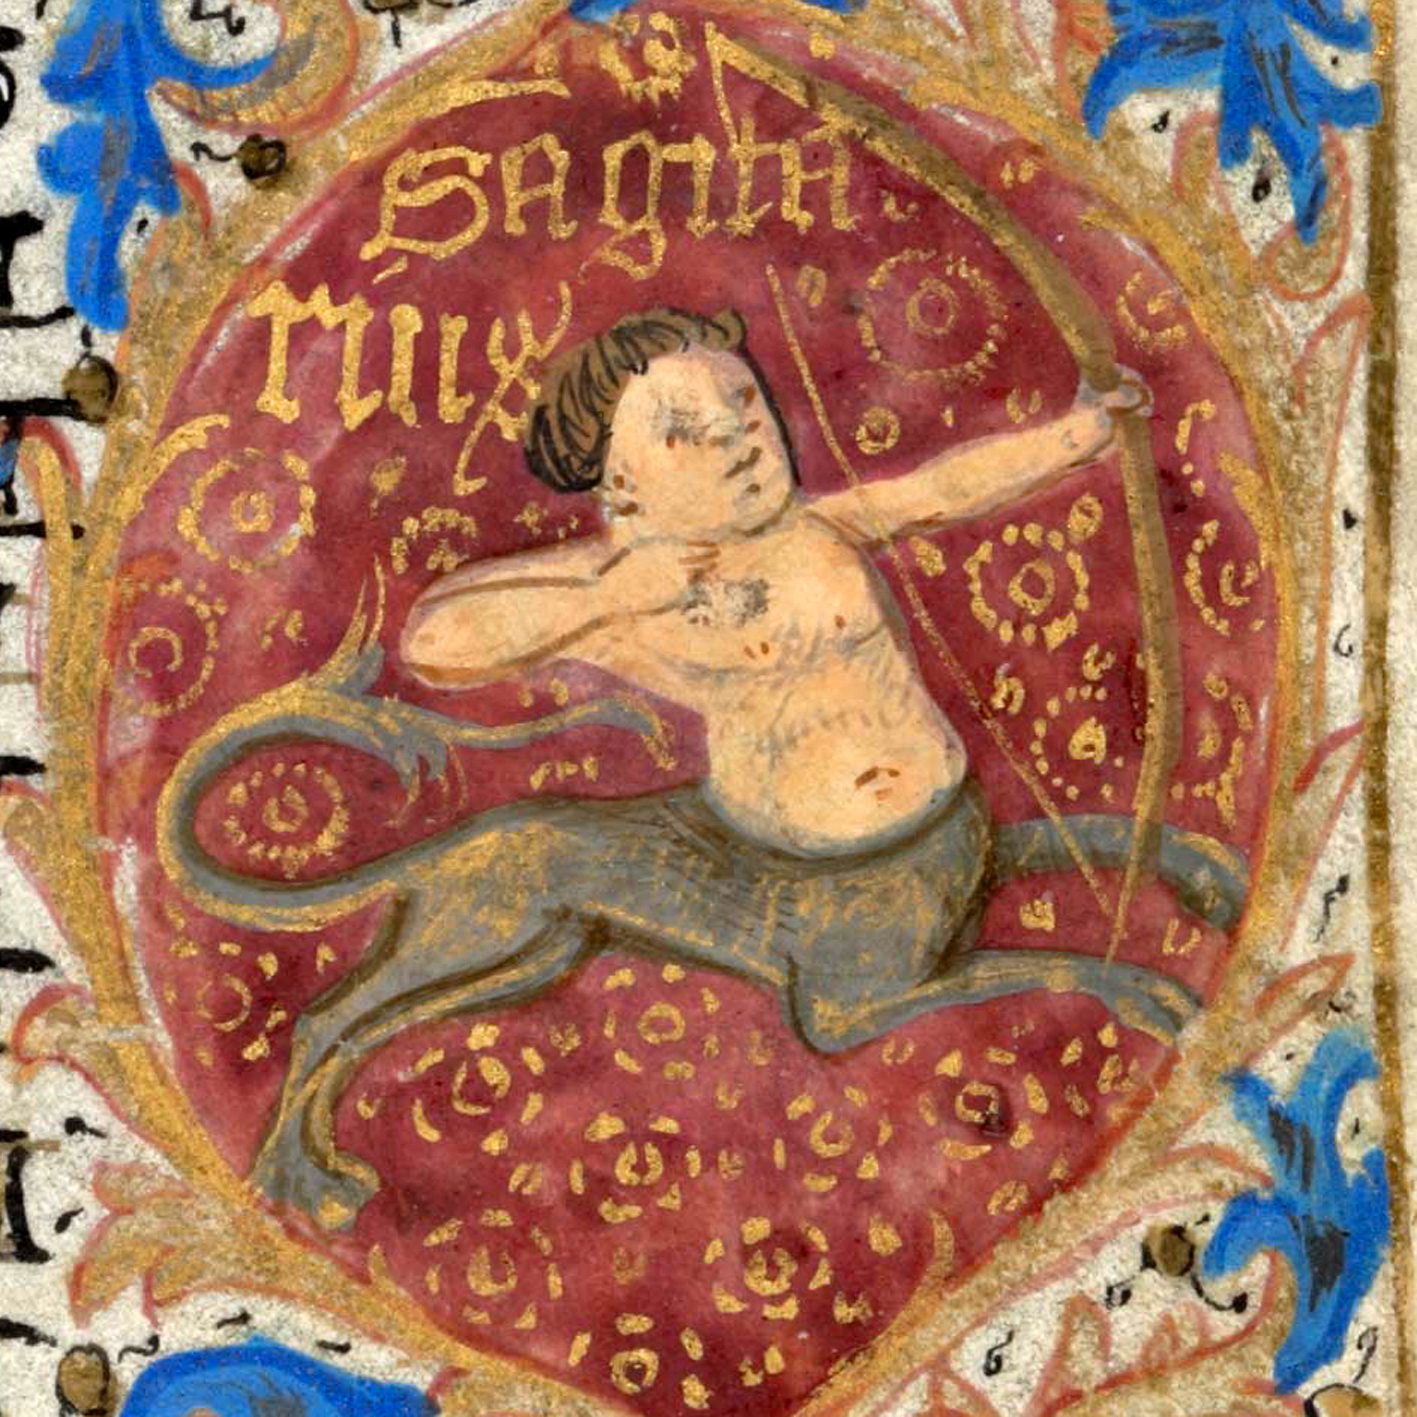 Sagitta
riux